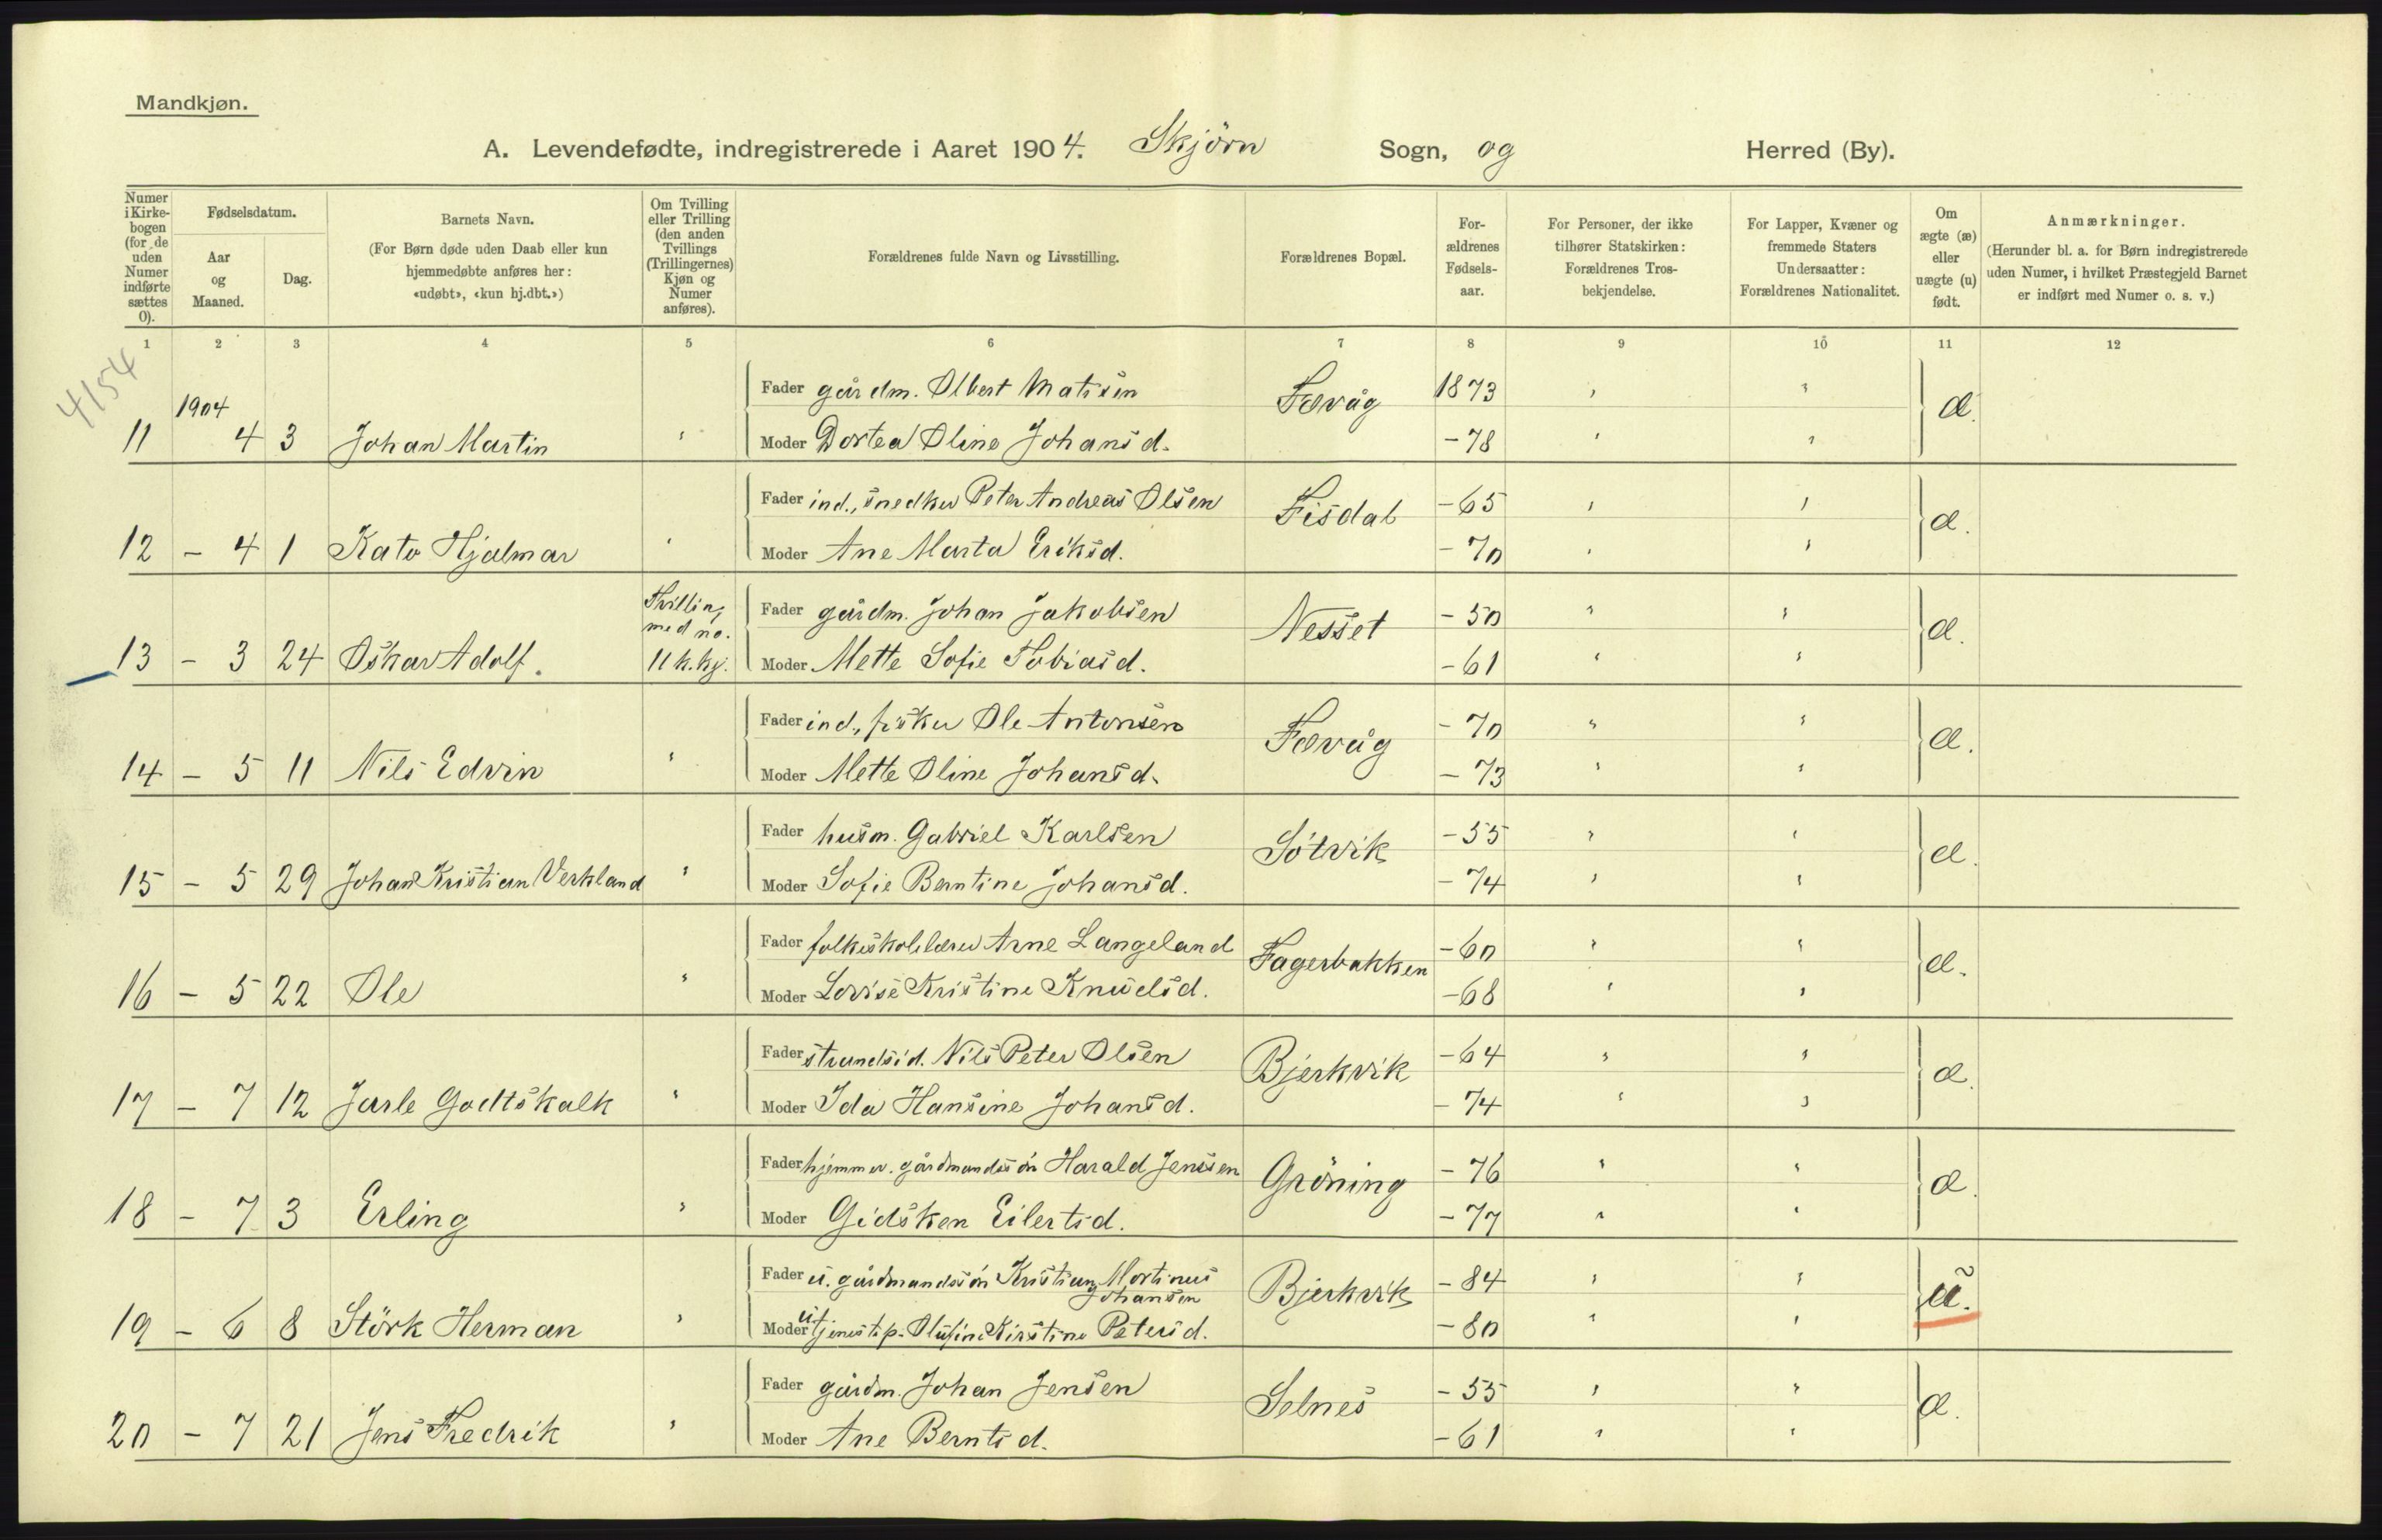 Mandkjøn.
A. Levendefødte, indregistrerede i Aaret 1904. Skjörn Sogn, og Herred (By).
Numer i Kirkebogen (for de uden Numer indførte sættes 0).
Fødselsdatum.
Aar og Maaned.
Dag.
Barnets Navn.
(For Børn døde uden Daab eller kun hjemmedøbte anføres her: «udøbt», «kun hj.dbt.»)
Om Tvilling eller Trilling (den anden Tvillings (Trillingernes) Kjøn og Numer anføres).
Forældrenes fulde Navn og Livsstilling.
Forældrenes Bopæl.
Forældrenes Fødselsaar.
For Personer, der ikke tilhører Statskirken: Forældrenes Trosbekjendelse.
For Lapper, Kvæner og fremmede Staters Undersaatter: Forældrenes Nationalitet.
Om ægte (æ) eller uægte (u) født.
Anmærkninger.
(Herunder bl. a. for Børn indregistrerede uden Numer, i hvilket Præstegjeld Barnet er indført med Numer o. s. v.)
1 2 3 4 5 6 7 8 9 10 11 12
4154
Fader gårdm. Olbert Matisen Fævåg 1873 " "
11 1904 4 3 Johan Martin " æ.
Moder Dortea Oline Johansd. - 78 " "
Fader ind., snedker Peter Andreas Olsen Fisdal - 65 " "
12 - 4 1 Kato Hjalmar " æ.
Moder Ane Marta Eriksd. - 70 " "
Fader gårdm. Johan Jakobsen Nesset - 50 " "
13 - 3 24 Oskar Adolf. Tvilling med no. 11 k.kj. æ.
Moder Mette Sofie Tobiasd. - 61 " "
Fader ind., fisker Ole Antonsen Fævåg - 70 " "
14 - 5 11 Nils Edvin " æ.
Moder Mette Oline Johansd. - 73 " "
Fader husm. Gabriel Karlsen Sötvik - 55 " "
15 - 5 29 Johan Kristian Verkland " æ.
Moder Sofie Berntine Johansd. - 74 " "
Fader folkeskolelærer Arne Langeland Fagerbakken - 60 " "
16 - 5 22 Ole " æ.
Moder Lovise Kristine Knudsd. - 68 " "
Fader strandsid. Nils Peter Olsen Bjerkvik - 64 " "
17 - 7 12 Jarle Godtskalk " æ.
Moder Ida Hansine Johansd. - 74 " "
Fader hjemmev. gårdmandssön Harald Jenssen Gröning - 76 " "
18 - 7 3 Erling " æ.
Moder Gidsken Eilertsd. - 77 " "
Fader u. gårdmandssön Kristian Mortinus Johansen Bjerkvik - 84 " "
19 - 6 8 Störk Herman " u.
Moder u. tjenestep. Olufine Kirstine Petersd. - 80 " "
Fader gårdm. Johan Jensen Selnes - 55 " "
20 - 7 21 Jens Fredrik " æ.
Moder Ane Berntsd. - 61 " "